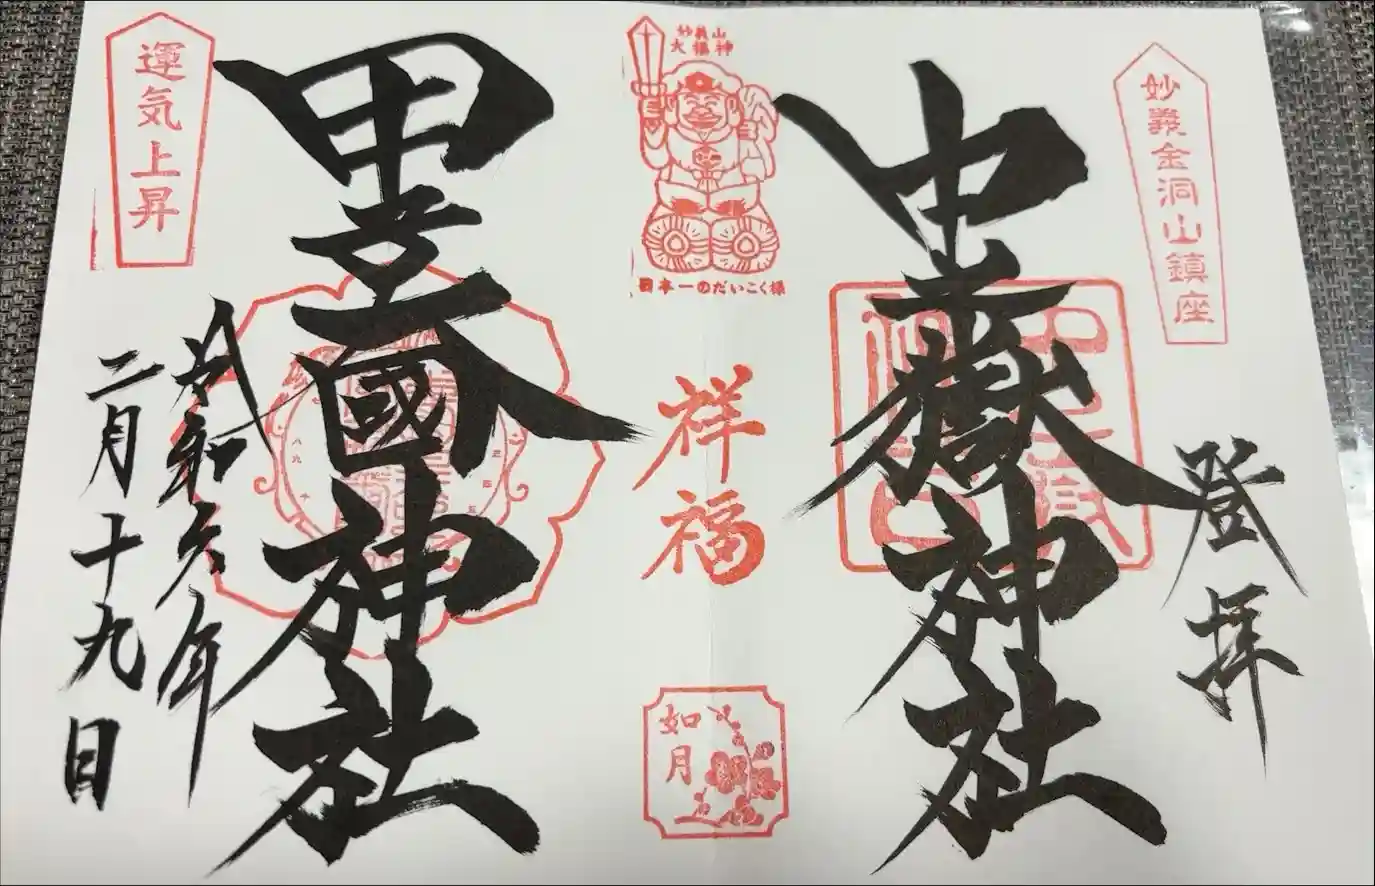 妙義金洞山鎮座
登拝
中之嶽神社
妙義山
大福神
日本一のだいこく様
祥福
如月
甲子大國神社
運気上昇
令和六年
二月十九日